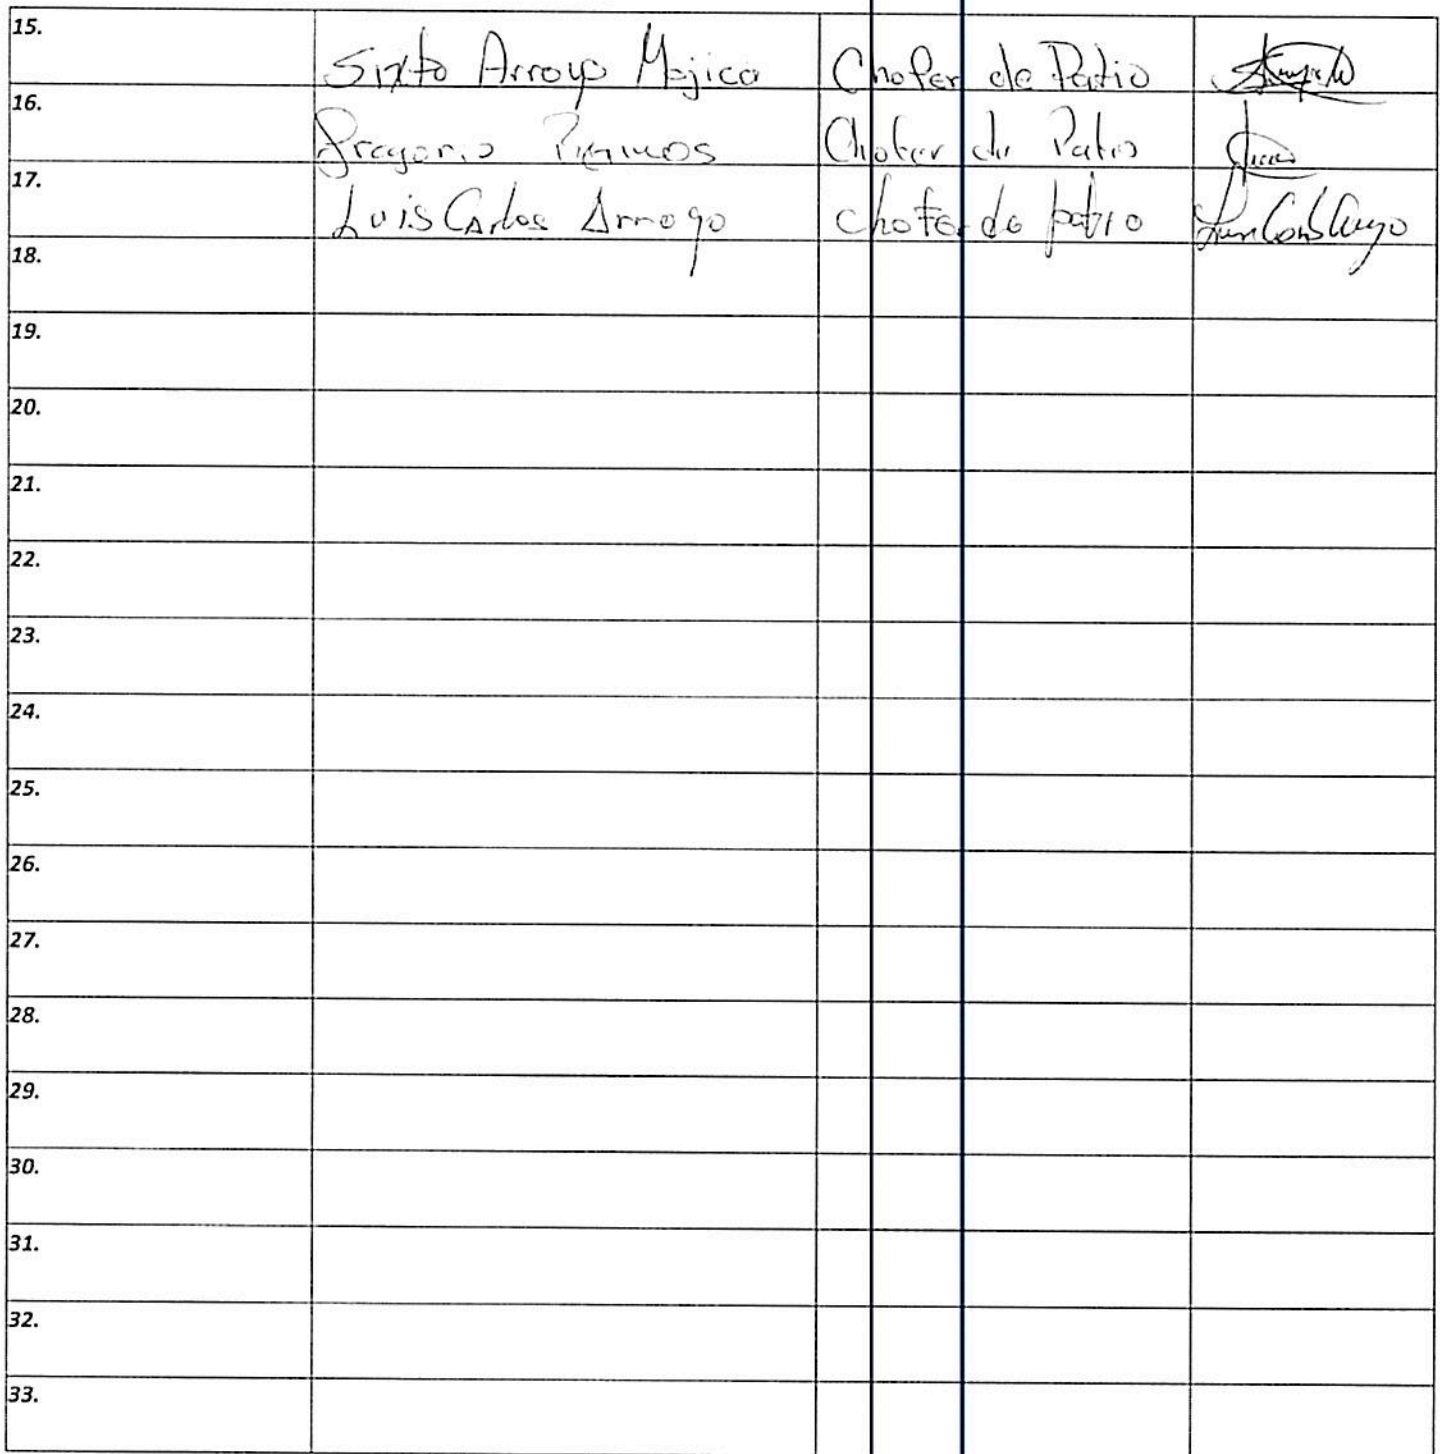 15. Sixto Arroyo Mojica Chofer de Patio
16. Gregorio Ramos Chofer de Patio
17. Luis Carlos Arroyo chofer de patio
18.
19.
20.
21.
22.
23.
24.
25.
26.
27.
28.
29.
30.
31.
32.
33.